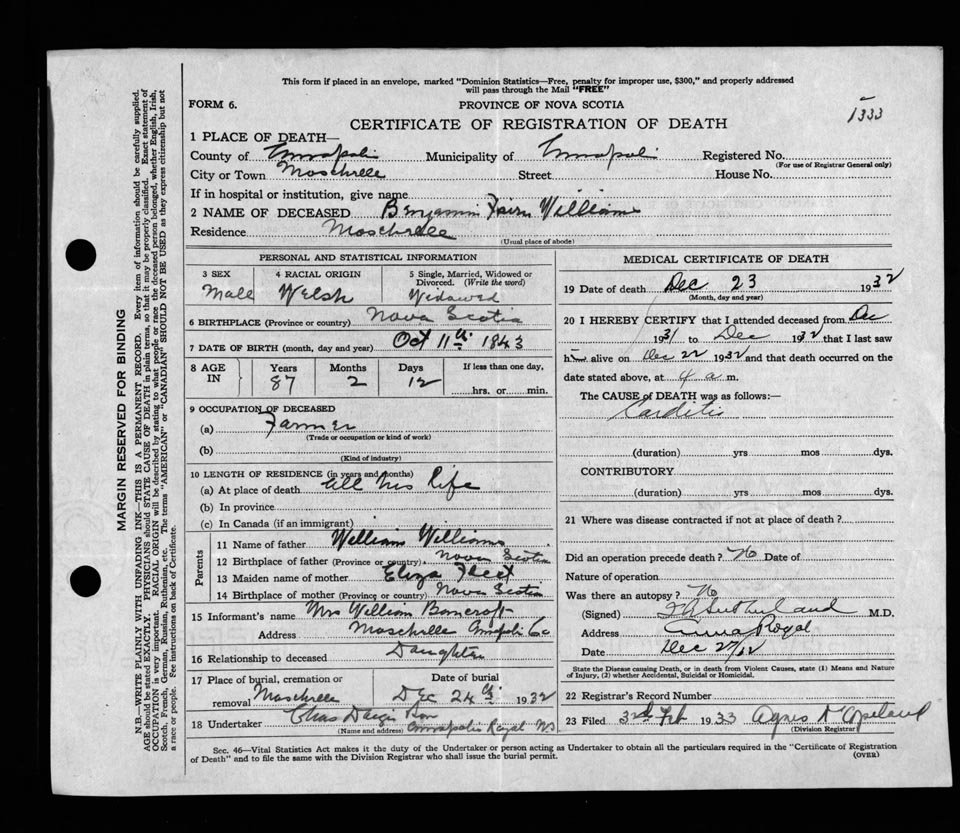 This form if placed in an envelope, marked "Dominion Statistics—Free, penalty for improper use, $300," and properly addressed
will pass through the Mail "FREE"
FORM 6.
PROVINCE OF NOVA SCOTIA
1333
CERTIFICATE OF REGISTRATION OF DEATH
1 PLACE OF DEATH—
County of Annapolis Municipality of Annapolis Registered No.
(For use of Registrar General only)
City or Town Moschelle Street House No.
If in hospital or institution, give name
2 NAME OF DECEASED Benjamin Williams
Residence Moschelle
(Usual place of abode)
PERSONAL AND STATISTICAL INFORMATION
3 SEX 4 RACIAL ORIGIN 5 Single, Married, Widowed or Divorced. (Write the word)
Male Welsh Widowed
6 BIRTHPLACE (Province or country) Nova Scotia
7 DATE OF BIRTH (month, day and year) Oct 11th 1843
8 AGE IN Years Months Days If less than one day,
87 2 12 hrs. or min.
9 OCCUPATION OF DECEASED
(a) Farmer
(Trade or occupation or kind of work)
(b)
(Kind of industry)
10 LENGTH OF RESIDENCE (in years and months)
(a) At place of death all his Life
(b) In province
(c) In Canada (if an immigrant)
Parents
11 Name of father William Williams
12 Birthplace of father (Province or country) Nova Scotia
13 Maiden name of mother Eliza
14 Birthplace of mother (Province or country) Nova Scotia
15 Informant's name Mrs William Bancroft
Address Moschelle Annapolis Co
16 Relationship to deceased Daughter
17 Place of burial, cremation or removal Date of burial
Moschelle Dec 24th 1932
18 Undertaker Chas Son
(Name and address) Annapolis Royal NS
MEDICAL CERTIFICATE OF DEATH
19 Date of death Dec 23 1932
(Month, day and year)
20 I HEREBY CERTIFY that I attended deceased from Dec
1931 to Dec 1932 that I last saw
him alive on Dec 22 1932 and that death occurred on the
date stated above, at 4 a m.
The CAUSE of DEATH was as follows:—
Carditis
(duration) yrs mos dys.
CONTRIBUTORY
(duration) yrs mos dys.
21 Where was disease contracted if not at place of death?
Did an operation precede death? No Date of
Nature of operation
Was there an autopsy? No
(Signed) Sutherland M.D.
Address Anna Royal
Date Dec 27/32
State the Disease causing Death, or in death from Violent Causes, state (1) Means and Nature
of Injury, (2) whether Accidental, Suicidal or Homicidal.
22 Registrar's Record Number
23 Filed 3rd Feb 1933 Agnes Copeland
(Division Registrar)
Sec. 46—Vital Statistics Act makes it the duty of the Undertaker or person acting as Undertaker to obtain all the particulars required in the "Certificate of Registration
of Death" and to file the same with the Division Registrar who shall issue the burial permit.
(OVER)
MARGIN RESERVED FOR BINDING
N.B.—WRITE PLAINLY WITH UNFADING INK—THIS IS A PERMANENT RECORD. Every item of information should be carefully supplied.
AGE should be stated EXACTLY. PHYSICIANS should STATE CAUSE OF DEATH in plain terms, so that it may be properly classified. Exact statement of
OCCUPATION is very important. RACIAL ORIGIN will be described by stating to what people or race the deceased person belonged, whether English, Irish,
Scotch, French, German, Russian, Ruthenian, etc. The terms "AMERICAN" or "CANADIAN" SHOULD NOT BE USED as they express citizenship but not
a race or people. Fee instructions on back of Certificate.